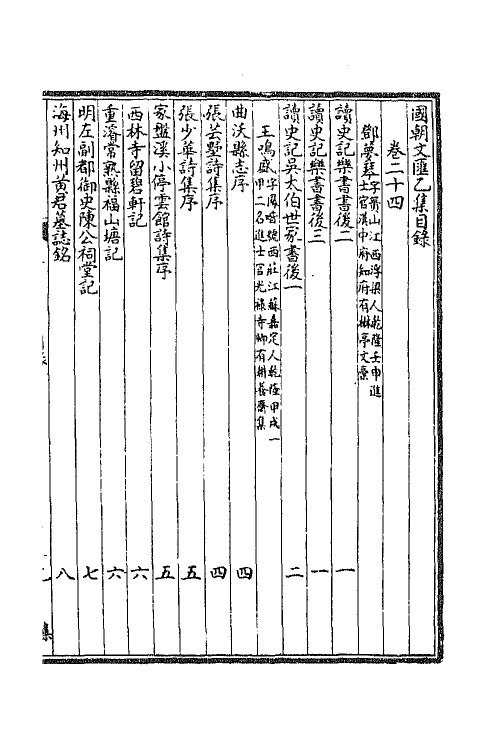 國朝文匯乙集目錄
卷二十四
鄧夢琴 字簣山江西浮梁人乾隆壬申進士官漢中府知府有楙亭文稾
讀史記樂書書後二 一
讀史記樂書書後三 一
讀史記吳太伯世家書後一 二
王鳴盛 字鳳喈號西莊江蘇嘉定人乾隆甲戌一甲二名進士官光祿寺卿有耕養齋集
曲沃縣志序 四
張芸墅詩集序 四
張少華詩集序 五
家盤溪小停雲館詩集序 五
西林寺留碧軒記 六
重濬常熟縣福山塘記 六
明左副都御史陳公祠堂記 七
海州知州黃君墓誌銘 八
集